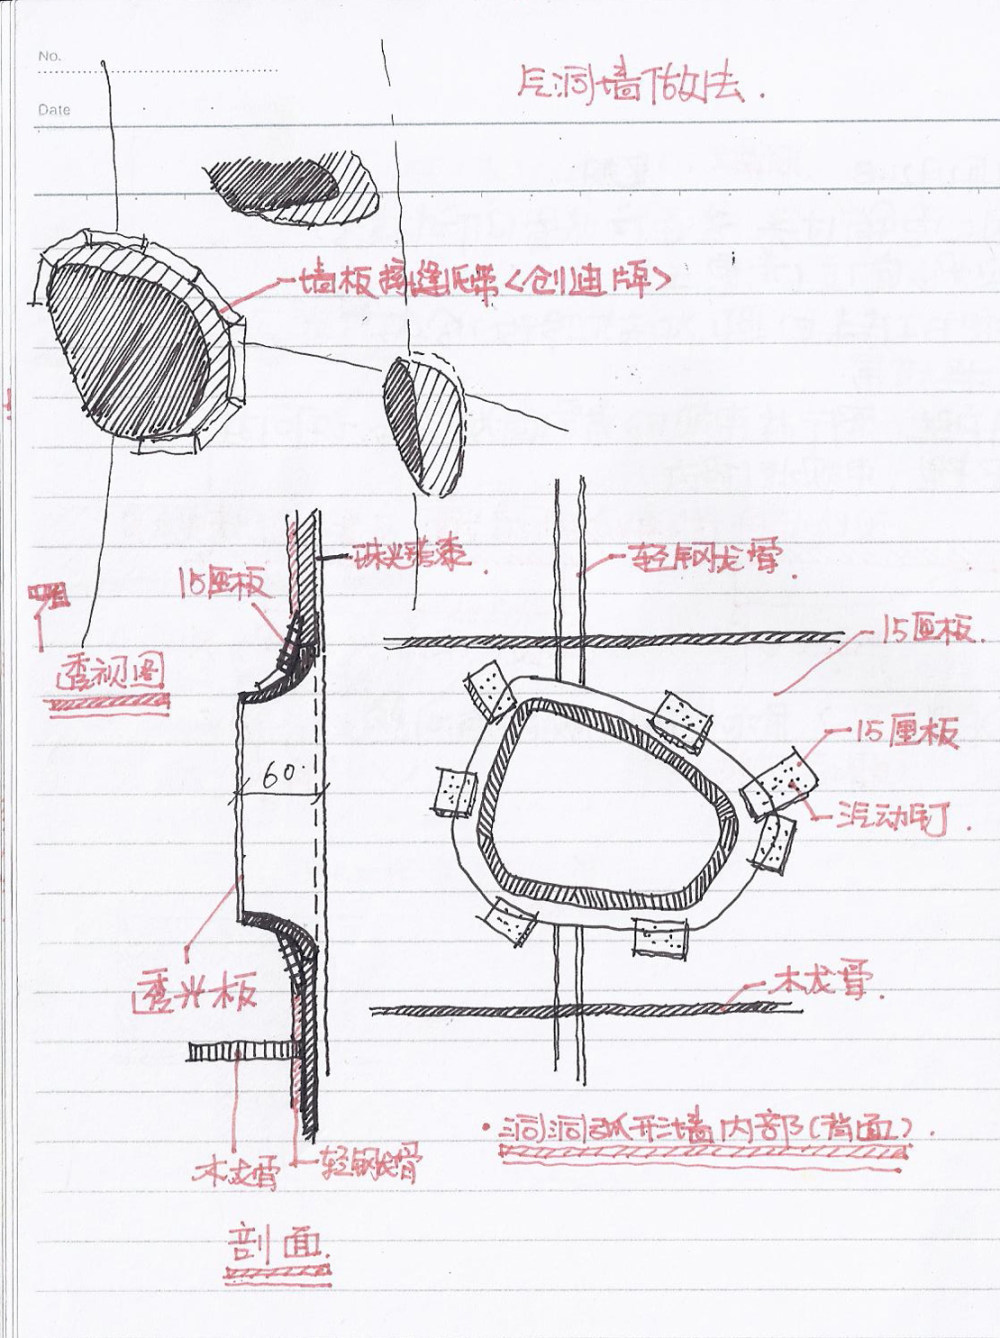 No.
Date
洞墙做法.
墙板接缝纸带<创迪牌>
珠光瓷漆.
15厘板
轻钢龙骨.
15厘板.
透视图
15厘板
60.
汽动钉.
透光板
木龙骨.
• 洞洞弧形墙内部(背面).
木龙骨
轻钢龙骨
剖面.